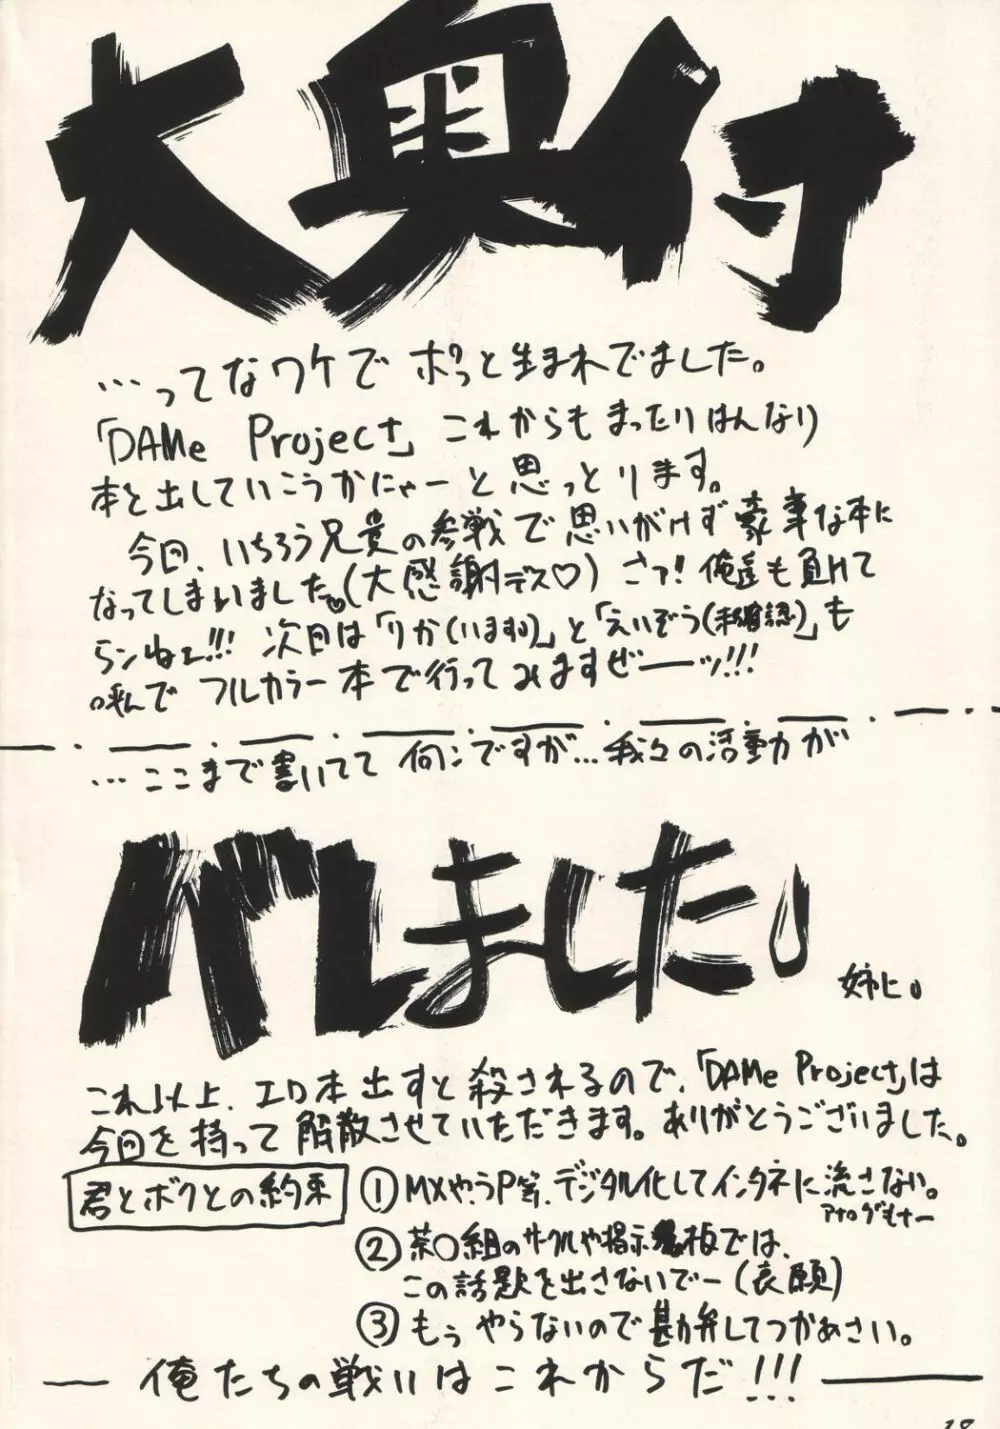 大奥付
…ってなワケで ポっと生まれでました。
「DAMe Project」これからもまったりはんなり
本を出していこうかにゃーと思っとります。
今回、いちろう兄貴の参戦で思いがけず豪華な本に
なってしまいました♡(大感謝デス♡) さァ!俺達も負けて
らンねェ!!! 次回は「りか(います)」と「えいぞう(未確認)」も
呼んでフルカラー本で行ってみますぜーーッ!!!
…ここまで書いてて何ンですが…我々の活動が
バレました。
姉に。
これ以上、エロ本出すと殺されるので、「DAMe Project」は
今回を持って解散させていただきます。ありがとうございました。
君とボクとの約束
①MXやうP等、デジタル化してインタネに流さない。
アナログもナー
②茶○組のサークルや掲示板では、
この話題を出さないでー(哀願)
③もぅ やらないので勘弁してつかあさい。
俺たちの戦いはこれからだ!!!
18